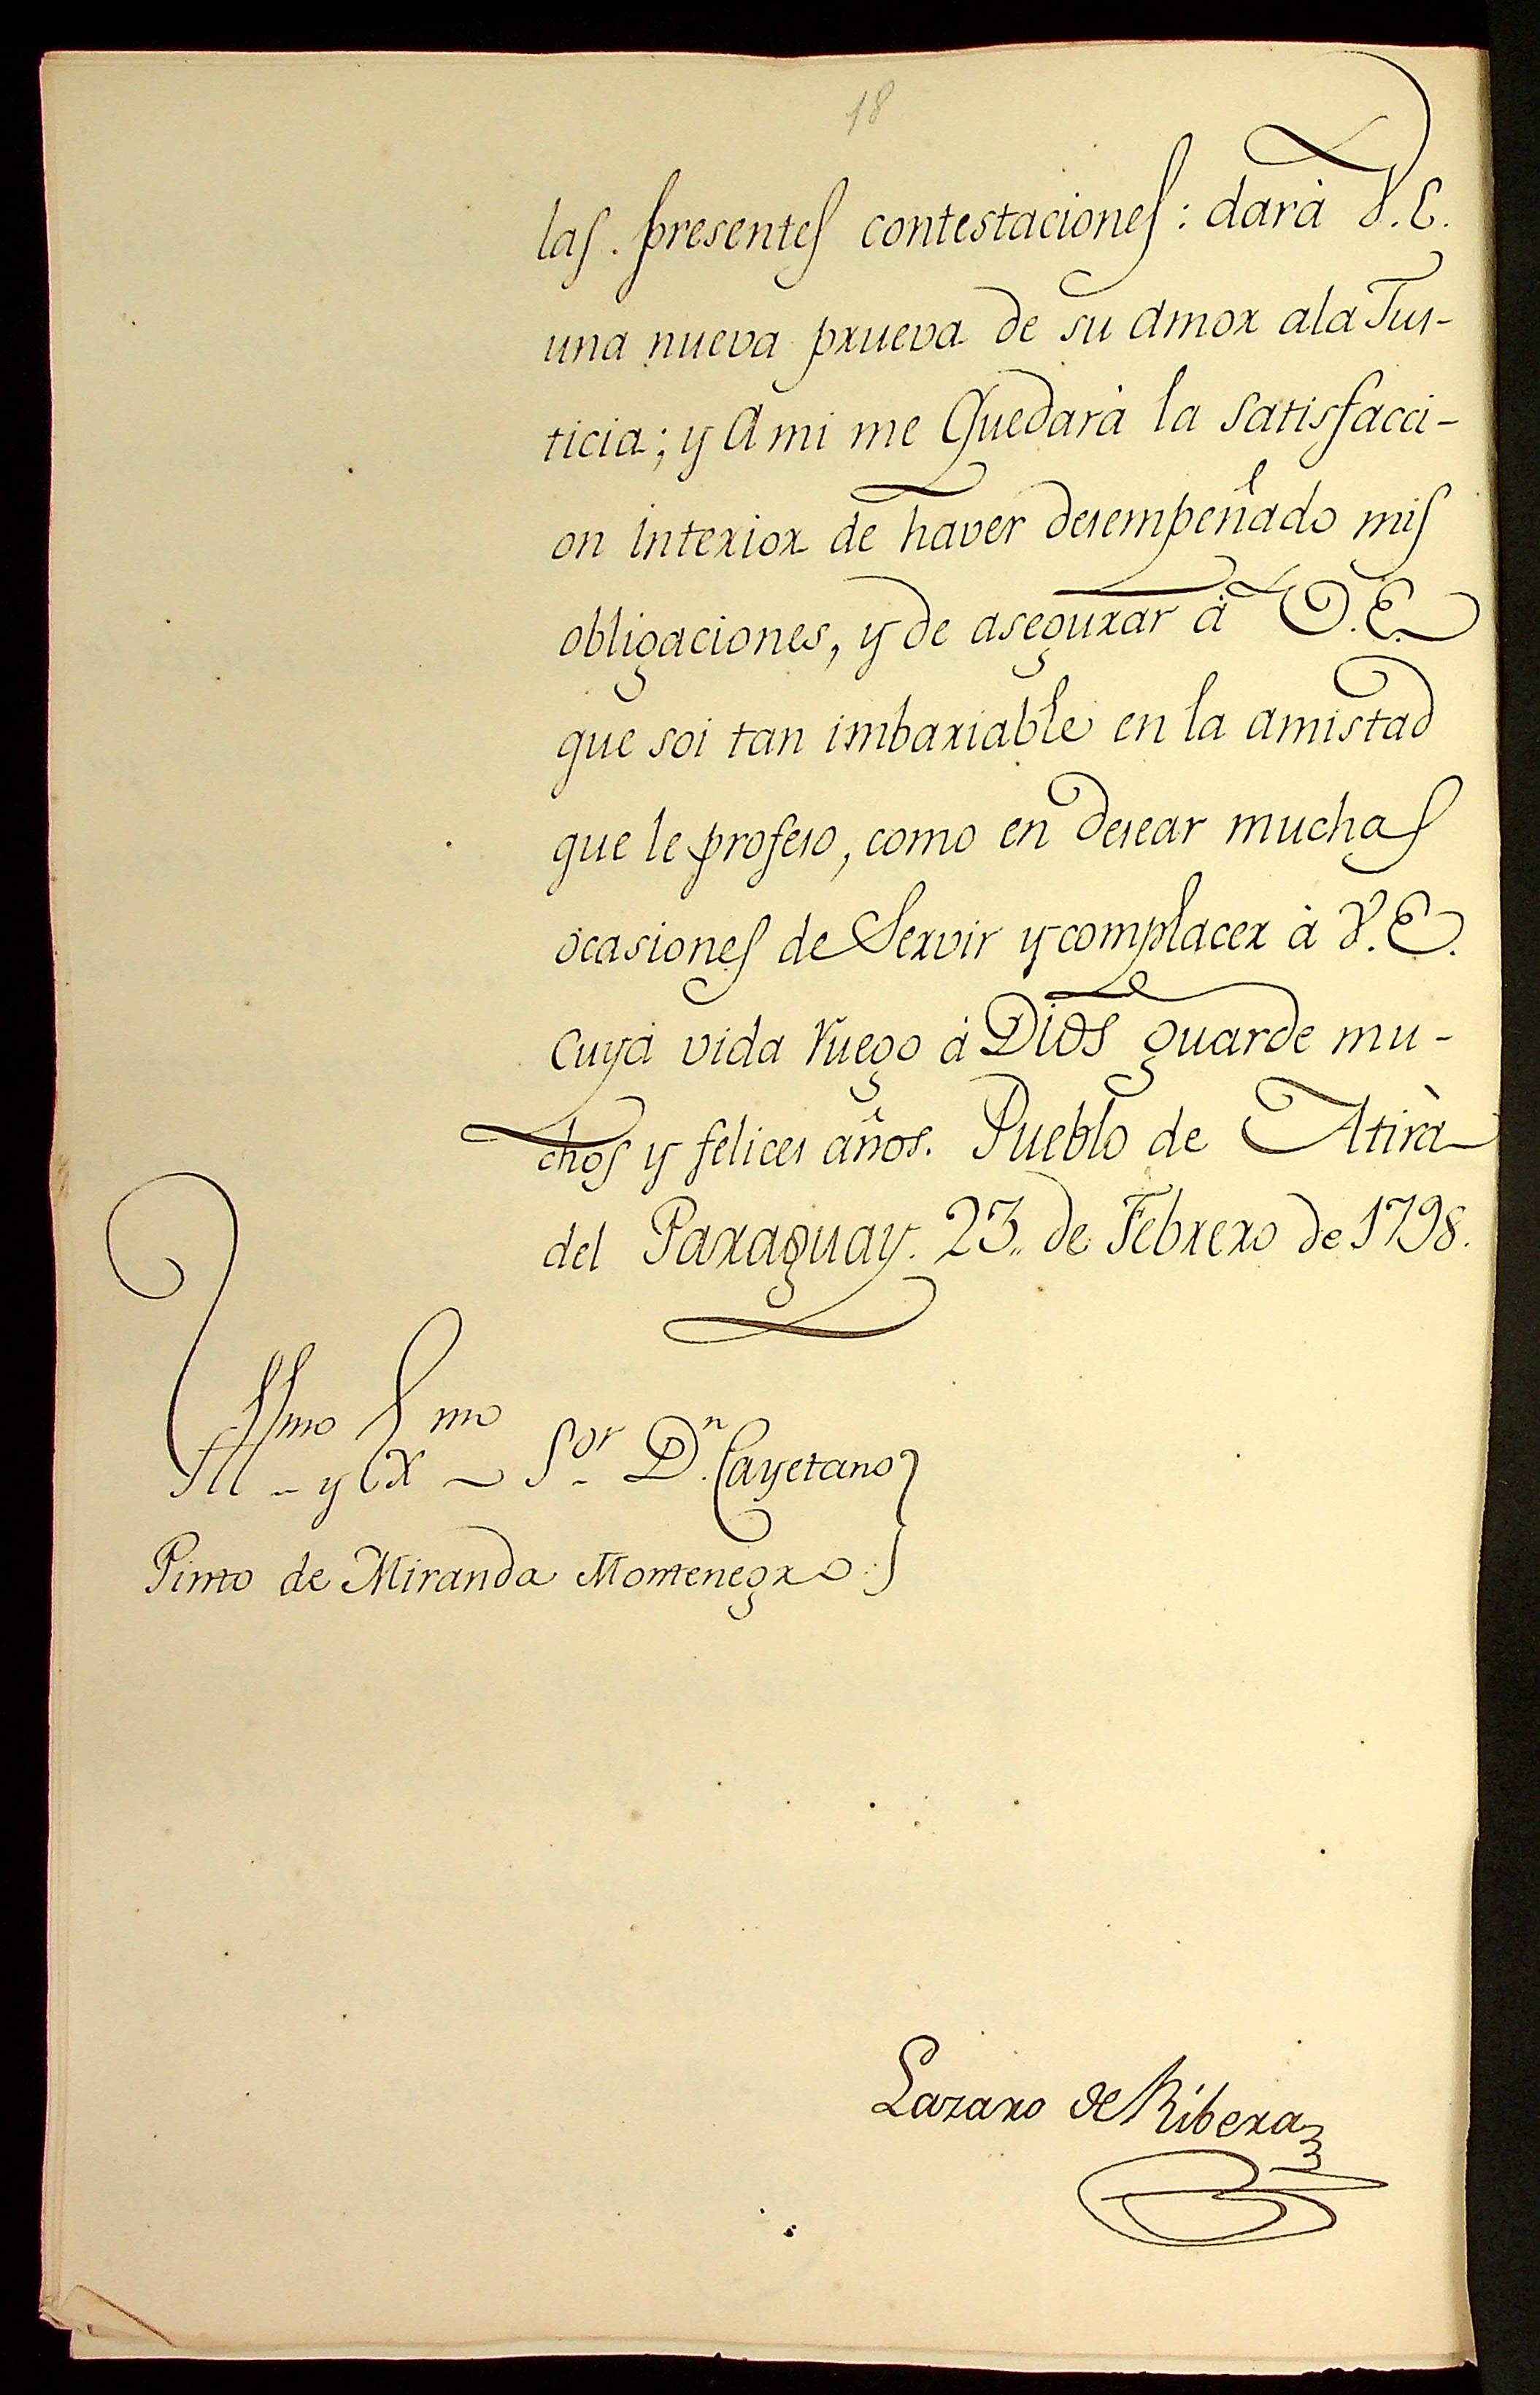 18
las. presentes contestaciones: darà V.E.
una nueva prueva de su amor ala Jus-
ticia; y A mi me Quedarà la satisfacci-
on interior de haver desempeñado mis
obligaciones, y de asegurar à V.E.
que soi tan imbariable en la amistad
que le profeso, como en desear muchas
ocasiones de Servir y complacer à V.E.
Cuya vida ruego à Dios guarde mu-
chos y felices años. Pueblo de Atirà
del Paraguay. 23,, de Febrero de 1798.
Illmo y Exmo Sor Dn. Cayetano
Pinto de Miranda Montenegro.
Lazaro de Ribera